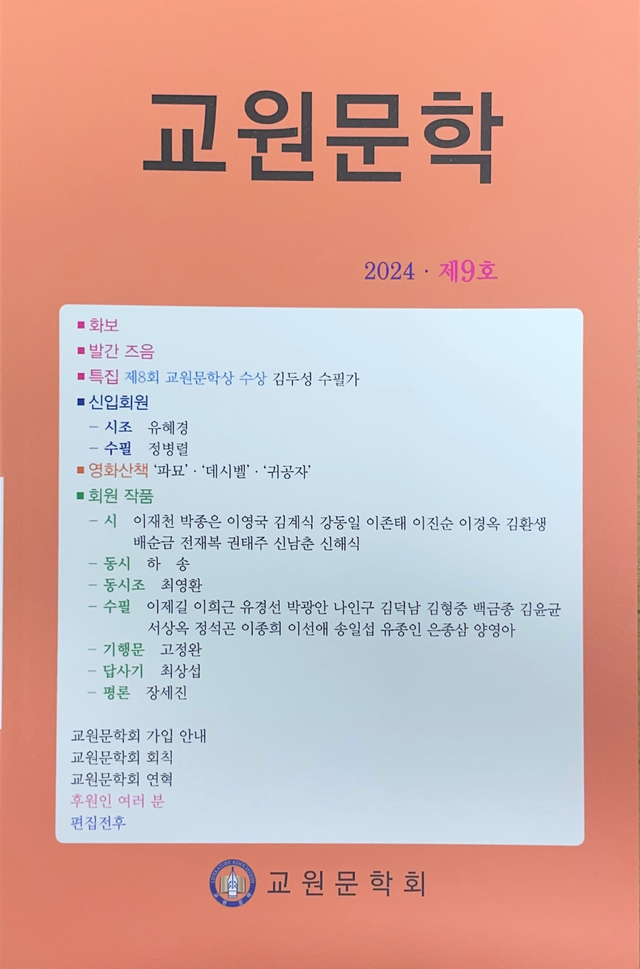 교원문학
2024 · 제9호
■ 화보
■ 발간 즈음
■ 특집 제8회 교원문학상 수상 김두성 수필가
■ 신입회원
– 시조 유혜경
– 수필 정병렬
■ 영화산책 ‘파묘’ · ‘데시벨’ · ‘귀공자’
■ 회원 작품
– 시 이재천 박종은 이영국 김계식 강동일 이존태 이진순 이경옥 김환생
배순금 전재복 권태주 신남춘 신해식
– 동시 하 송
– 동시조 최영환
– 수필 이제길 이희근 유경선 박광안 나인구 김덕남 김형중 백금종 김윤균
서상옥 정석곤 이종희 이선애 송일섭 유종인 은종삼 양영아
– 기행문 고정완
– 답사기 최상섭
– 평론 장세진
교원문학회 가입 안내
교원문학회 회칙
교원문학회 연혁
후원인 여러 분
편집전후
교원문학회